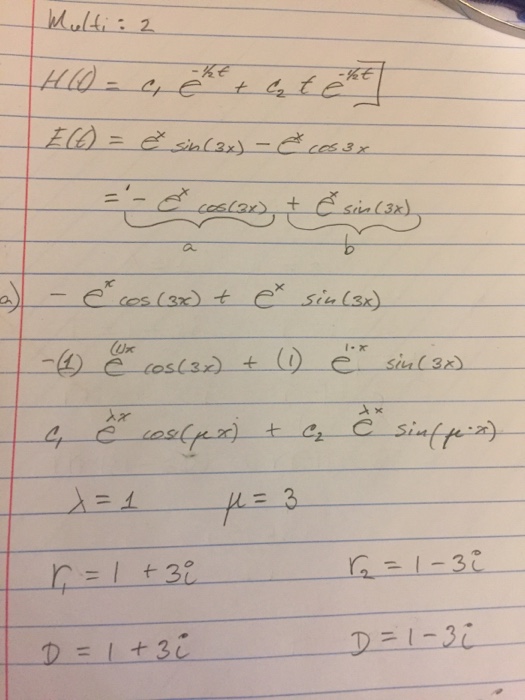 Multi: 2
H(t) = c₁ e^-½t + c₂ t e^-½t
E(t) = e^x sin(3x) - e^x cos 3x
= - e^x cos(3x) + e^x sin(3x)
a b
a) - e^x cos(3x) + e^x sin(3x)
-(1) e^(1)x cos(3x) + (1) e^1·x sin(3x)
c₁ e^λx cos(μx) + c₂ e^λx sin(μ·x)
λ = 1 μ = 3
r₁ = 1 + 3i r₂ = 1 - 3i
D = 1 + 3i D = 1 - 3i